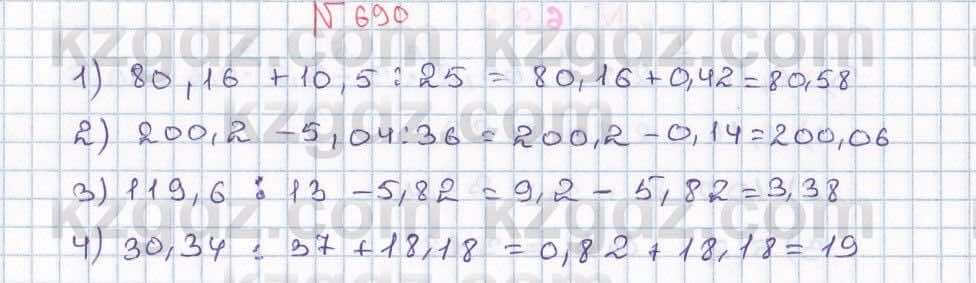 №690
1) 80,16 + 10,5 : 25 = 80,16 + 0,42 = 80,58
2) 200,2 - 5,04 : 36 = 200,2 - 0,14 = 200,06
3) 119,6 : 13 - 5,82 = 9,2 - 5,82 = 3,38
4) 30,34 : 37 + 18,18 = 0,82 + 18,18 = 19
kzgdz.com kzgdz.com
kzgdz.com
kzgdz.com kzgdz.com